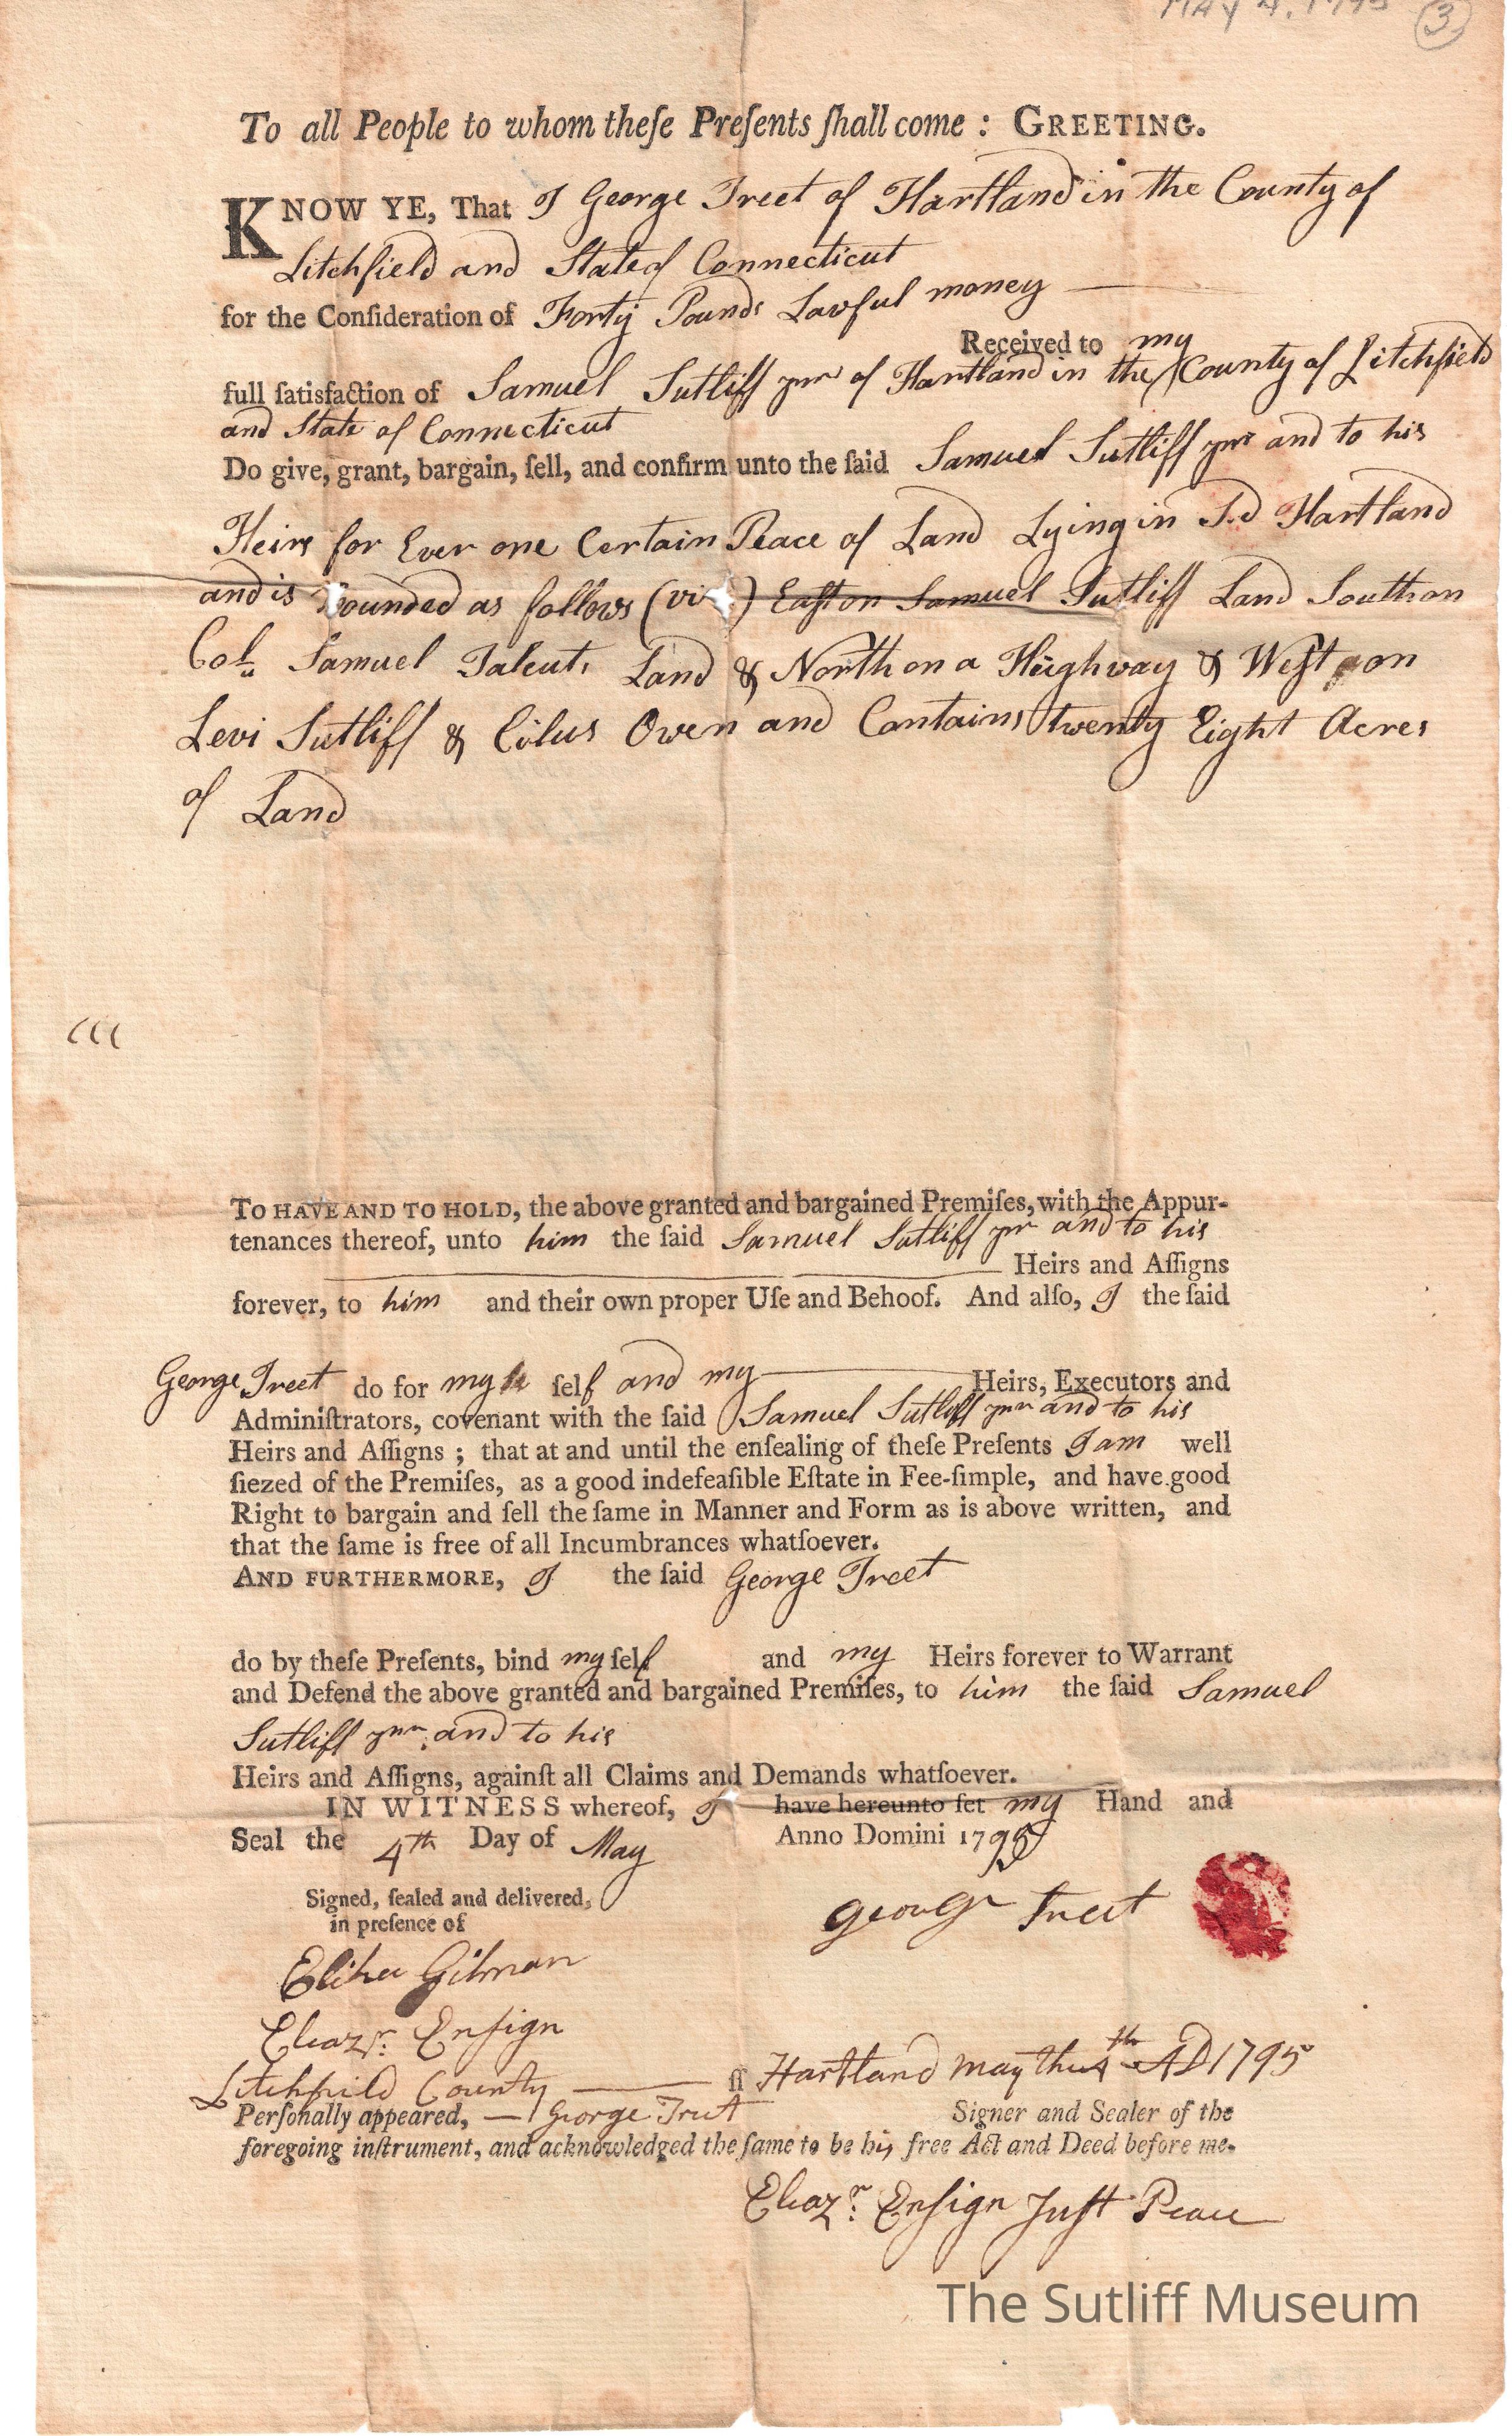 MAY 4, 1795 3
To all People to whom theſe Preſents ſhall come : GREETING.
KNOW YE, That I George Treet of Hartland in the County of
Litchfield and State of Connecticut
for the Conſideration of Forty Pounds Lawful money
Received to my
full ſatisfaction of Samuel Sutliff jnr of Hartland in the County of Litchfield
and State of Connecticut
Do give, grant, bargain, ſell, and confirm unto the ſaid Samuel Sutliff jnr and to his
Heirs for Ever one Certain Peace of Land Lying in S.d Hartland
and is Bounded as follows (vi ) Eaſt on Samuel Sutliff Land South on
Col. Samuel Talcuts Land & North on a Highway & Weſt on
Levi Sutliff & Cilus Owen and Contains twenty Eight Acres
of Land
TO HAVE AND TO HOLD, the above granted and bargained Premiſes, with the Appur-
tenances thereof, unto him the ſaid Samuel Sutliff jnr and to his
Heirs and Aſſigns
forever, to him and their own proper Uſe and Behoof. And alſo, I the ſaid
George Treet do for my ſelf and my Heirs, Executors and
Adminiſtrators, covenant with the ſaid Samuel Sutliff jnr and to his
Heirs and Aſſigns ; that at and until the enſealing of theſe Preſents I am well
ſiezed of the Premiſes, as a good indefeaſible Eſtate in Fee-ſimple, and have good
Right to bargain and ſell the ſame in Manner and Form as is above written, and
that the ſame is free of all Incumbrances whatſoever.
AND FURTHERMORE, I the ſaid George Treet
do by theſe Preſents, bind my ſelf and my Heirs forever to Warrant
and Defend the above granted and bargained Premiſes, to him the ſaid Samuel
Sutliff jnr and to his
Heirs and Aſſigns, againſt all Claims and Demands whatſoever.
IN WITNESS whereof, I have hereunto ſet my Hand and
Seal the 4th Day of May Anno Domini 1795
Signed, ſealed and delivered,
in preſence of
George Treet
Elihu Gilman
Eleazr. Enſign
Litchfield County ſſ Hartland May the 4th AD 1795
Perſonally appeared, George Treet Signer and Sealer of the
foregoing inſtrument, and acknowledged the ſame to be his free Act and Deed before me.
Eleazr. Enſign Juſt Peace
The Sutliff Museum